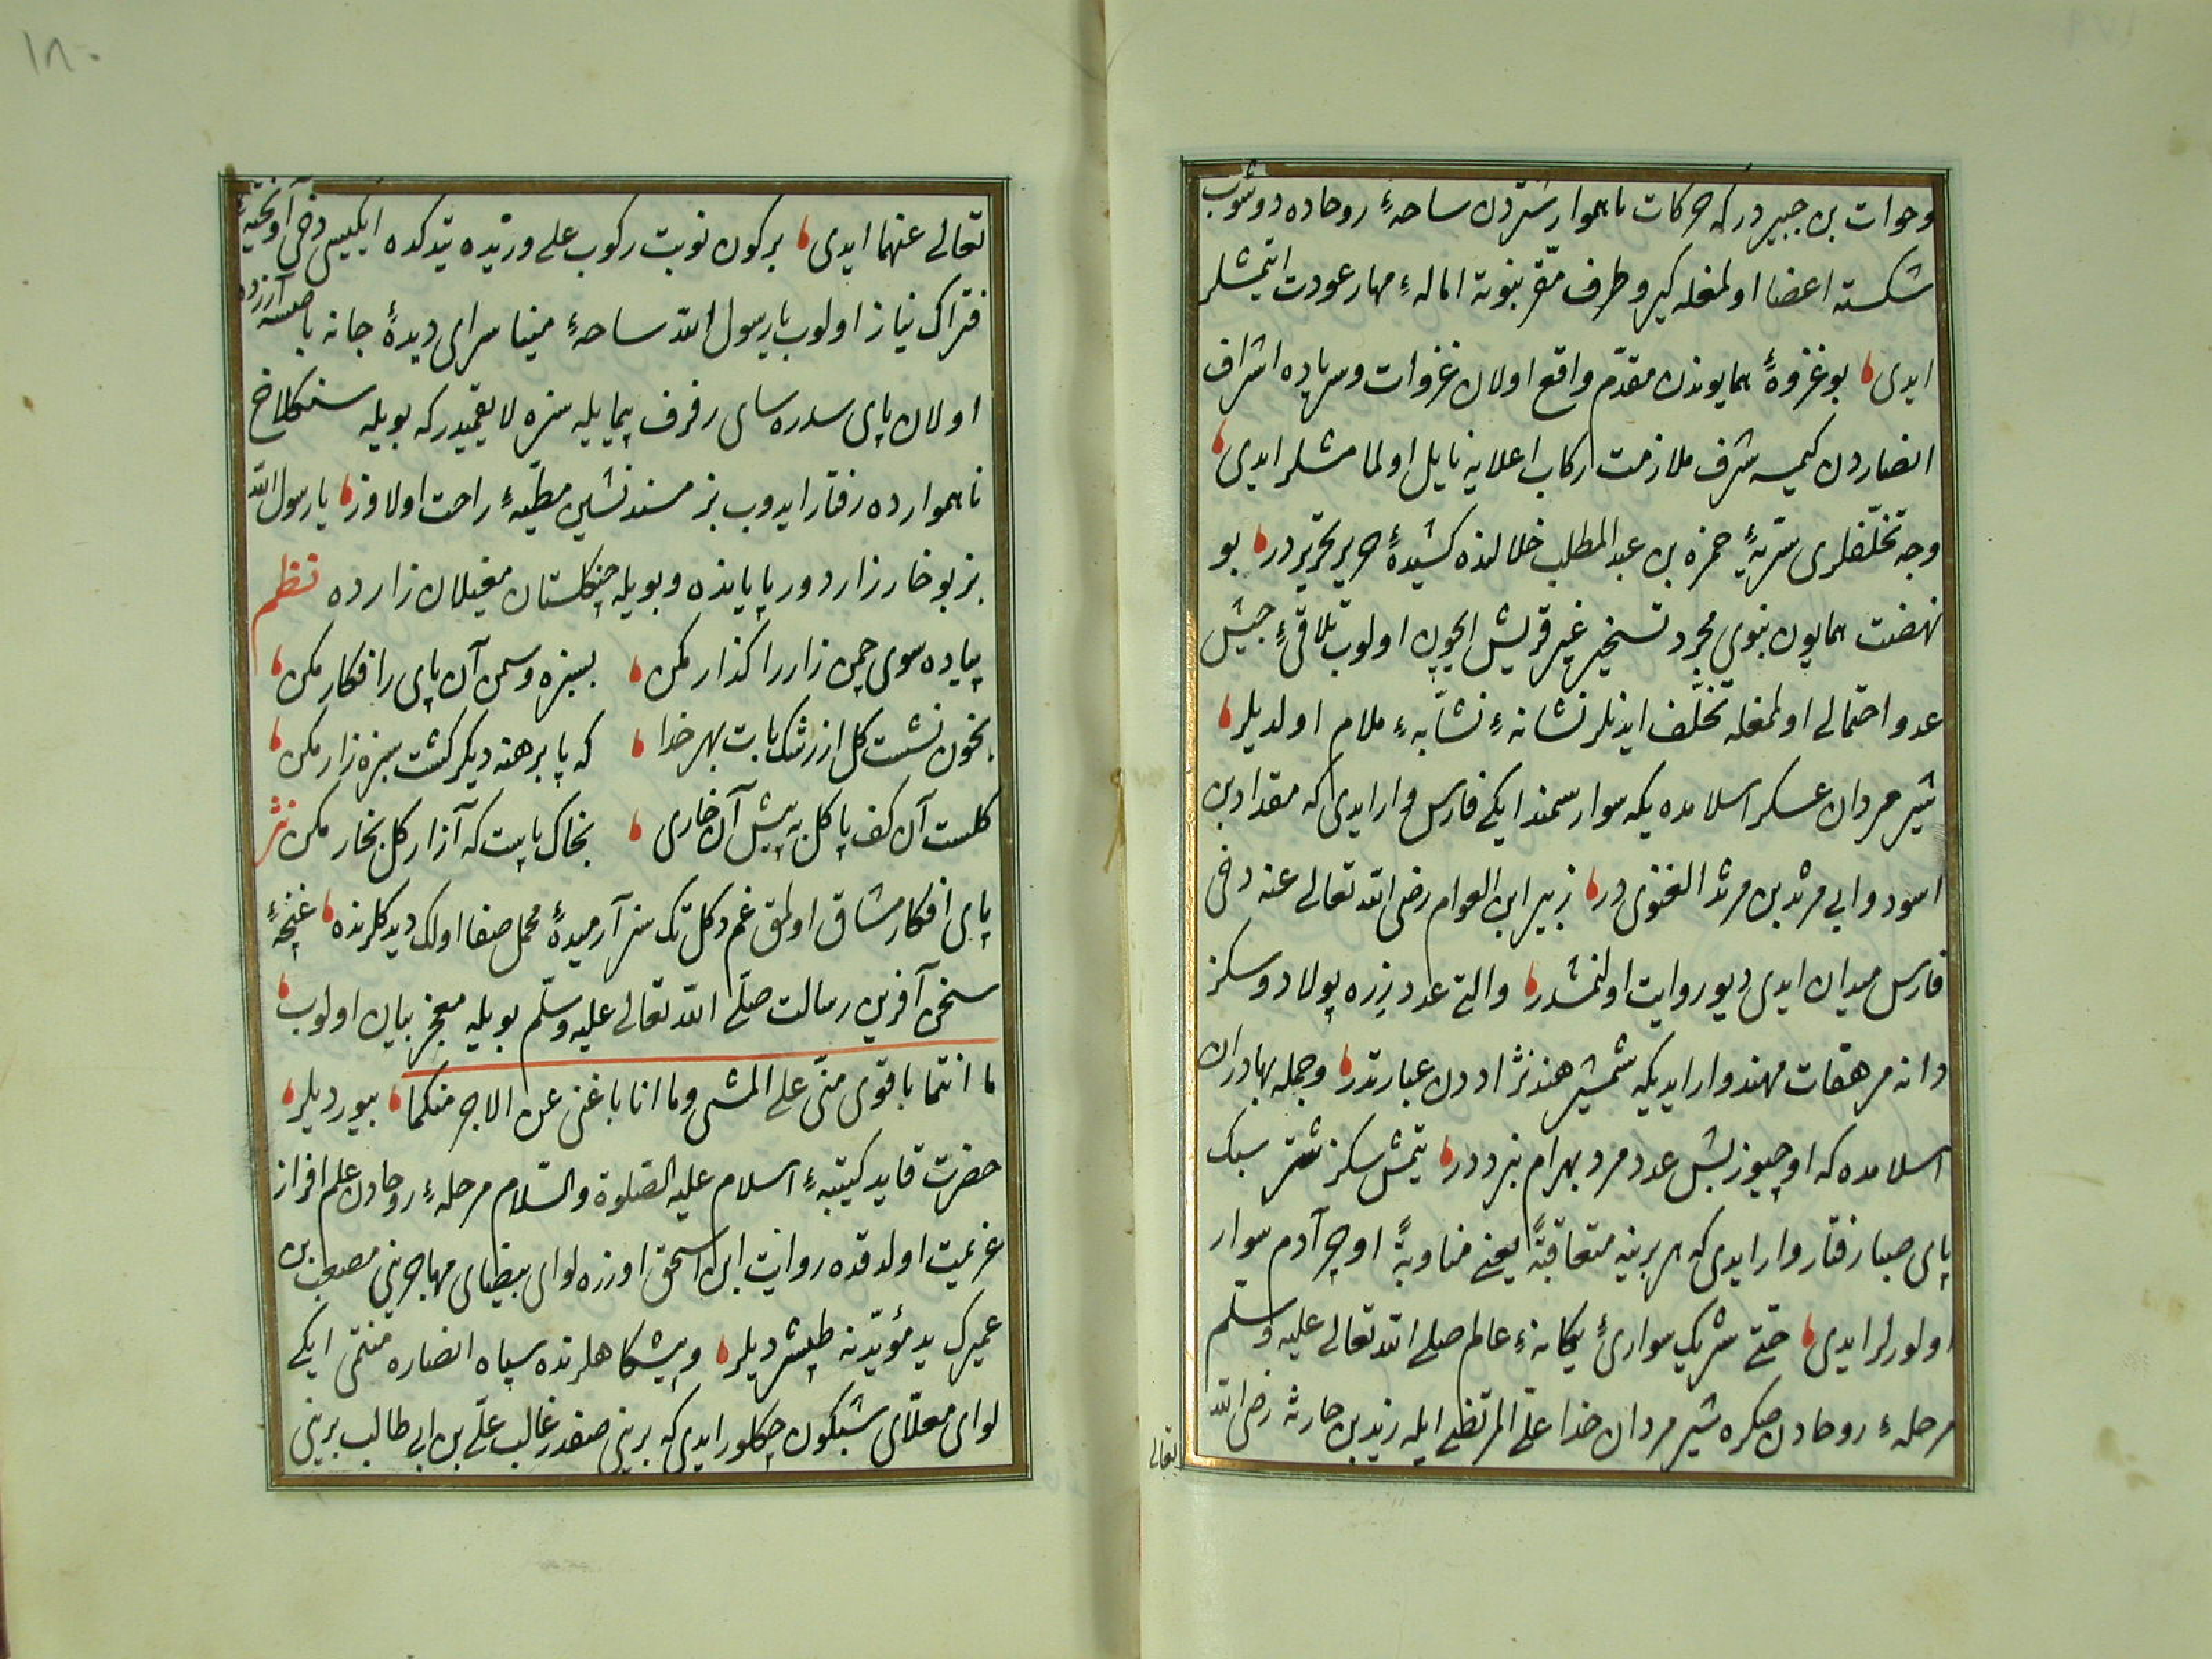 وحوات بن جبیر درکه حرکات ناهموار شتردن ساحهٔ روحاده دوشوب
شکسته اعضا اولمغله کیرو طرف مقر نبوته امالهٔ مهار عودت ایتمشلر
ایدی بو غزوهٔ همایوندن مقدّم واقع اولان غزوات وسریاده اشراف
انصاردن کیمسه شرف ملازمت رکاب اعلایه نایل اولمامشلر ایدی
وجه تخلّفلری سریّهٔ حمزه بن عبد المطلب خلالنده کشیدهٔ حریر تحریردر بو
نهضت همایون نبوی مجرد تسخیر عیر قریش ایچون اولوب تلاقیٔ جیش
عدو احتمالی اولمغله تخلّف ایدنلر نشانهٔ نشّابهٔ ملام اولمدیلر
شیر مردان عسکر اسلامده یکه سوار سمند ایکی فارس وار ایدی که مقداد بن
اسود و ابی مرثد بن مرثد الغنوی در زبیر ابن العوام رضی الله تعالی عنه دخی
فارس میدان ایدی دیو روایت اولنمشدر والتی عدد زره پولاد و سکز
دانه مرهقات مهند وار ایدیکه شمشیر هند نژاددن عبارتدر وجمله بهادران
اسلامده که اوچیوز بش عدد مرد بهرام نبرددر یتمش سکز شتر سبک
پای صبا رفتار وار ایدی که هر برینه متعاقبةً یعنی مناوبةً اوچر آدم سوار
اولورلر ایدی حتی شریک سواریٔ یکانهٔ عالم صلی الله تعالی علیه وسلم
مرحلهٔ روحادن صکره شیر مردان خدا علی المرتضی ایله زید بن حارثه رضی الله
تعالی
١٨٠
تعالی عنهما ایدی بر کون نوبت رکوب علی و زیده یتدکده ایکیسی دخی آویختهٔ
فتراک نیاز اولوب یا رسول الله ساحهٔ مینا سرای دیدهٔ جانه باصسه آزرده
اولان پای سدره سای رفرف پیمایله سزه لایقمیدر که بویله سنکلاخ
ناهموارده رفتار ایدوب بز مسند نشین مطیّهٔ راحت اولاوز یا رسول الله
بز بو خارزار دور پایانده و بویله چنکلستان مغیلان زارده نظم
پیاده سوی چمن زار را کذار مکن بسبزه و سمن آن پای را فکار مکن
بخون نشست کل از رشک پایت بهر خدا که پا برهنه دیکر کشت سبزه زار مکن
کلست آن کف پا کل به پیش آن خاری بخاک پایت که آزار کل بخار مکن نثر
پای افکار مشاق اولمق غم دکل تک سز آرمیدهٔ محمل صفا اولک دیدکلرنده غنچهٔ
سخن آفرین رسالت صلّی الله تعالی علیه وسلّم بویله معجز بیان اولوب
ما انتما باقوی منّی علی المشی وما انا باغنی عن الاجر منکما بیوردیلر
حضرت قاید کتیبهٔ اسلام علیه الصّلوة والسّلام مرحلهٔ روحادن علم افراز
عزیمت اولدقده روایت ابن اسحق اوزره لوای بیضای مهاجرینی مصعب بن
عمیرک ید مؤیّدینه طپشردیلر و پیشکاهلرنده سپاه انصاره منتمی ایکی
لوای معلّای شبکون چکلور ایدی که برینی صفدر غالب علی بن ابی طالب برینی